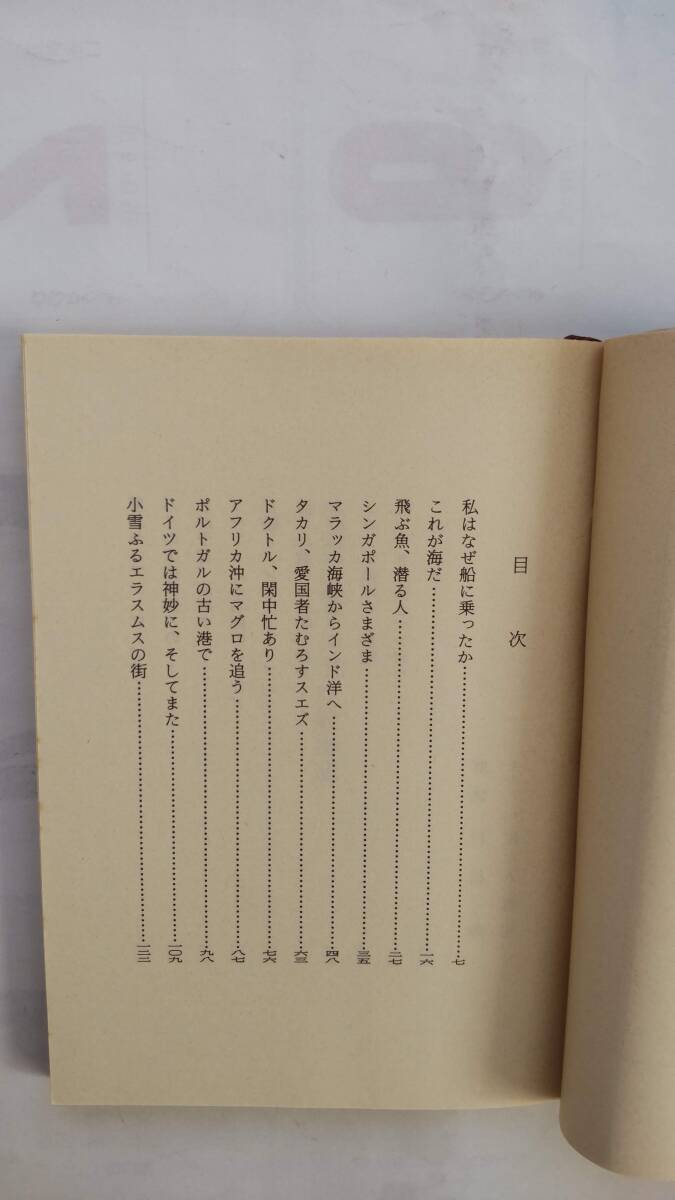 目次
私はなぜ船に乗ったか……七
これが海だ……一六
飛ぶ魚、潜る人……二七
シンガポールさまざま……三五
マラッカ海峡からインド洋へ……四八
タカリ、愛国者たむろすスエズ……六三
ドクトル、閑中忙あり……七六
アフリカ沖にマグロを追う……八七
ポルトガルの古い港で……九八
ドイツでは神妙に、そしてまた……一〇九
小雪ふるエラスムスの街……一二三